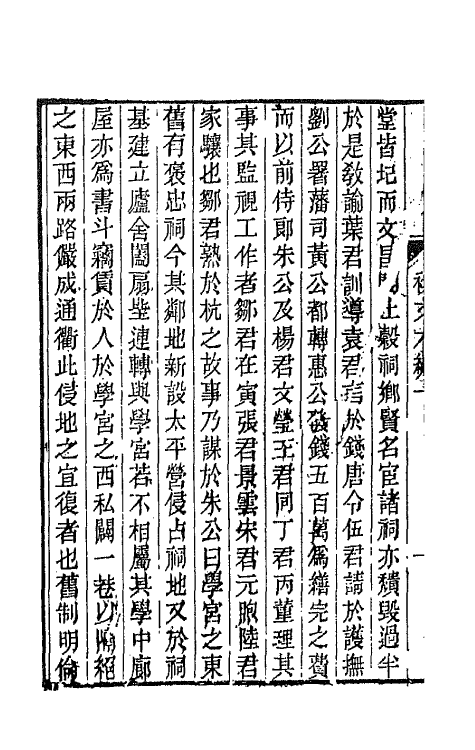 堂皆圮而文昌閣土穀祠鄉賢名宦諸祠亦積毀過半
於是敎諭葉君訓導袁君言於錢唐令伍君請於護撫
劉公署藩司黃公都轉惠公發錢五百萬爲繕完之費
而以前侍郎朱公及楊君文瑩王君同丁君丙董理其
事其監視工作者鄒君在寅張君景雲宋君元煦陸君
家驤也鄒君熟於杭之故事乃謀於朱公曰學宮之東
舊有褒忠祠今其鄰地新設太平營侵占祠地又於祠
基建立廬舍闔扇垒連轉與學宮若不相屬其學中廊
屋亦爲書斗竊賃於人於學宮之西私闢一巷以隔絕
之東西兩路儼成通衢此侵地之宜復者也舊制明倫